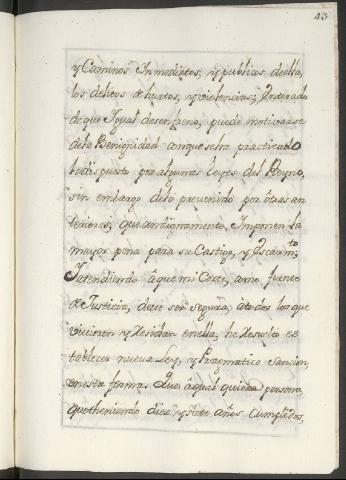 43
y Caminos Inmediatos, y publicos de ella,
los delitos de hurtos, y violencias; Interado
de que Igual desenfreno, puede motivarse
de la Benignidad conque se ha practicado
lo dispuesto por algunas Leyes del Reyno,
sin embargo de lo prevenido por otras an
teriores, que condignamente, Imponen la
mayor pena para su Castigo, y Escarm.to
Y atendiendo â que mi Corte, como fuente
de Justicia, deve ser segura, â todos los que
vivieren y Residan en ella, he Resuelto es
tablecer nueva Ley, y Pragmatica Sancion,
en esta forma. Que â qual quiera persona,
que theniendo diez y siete años Cumplidos,